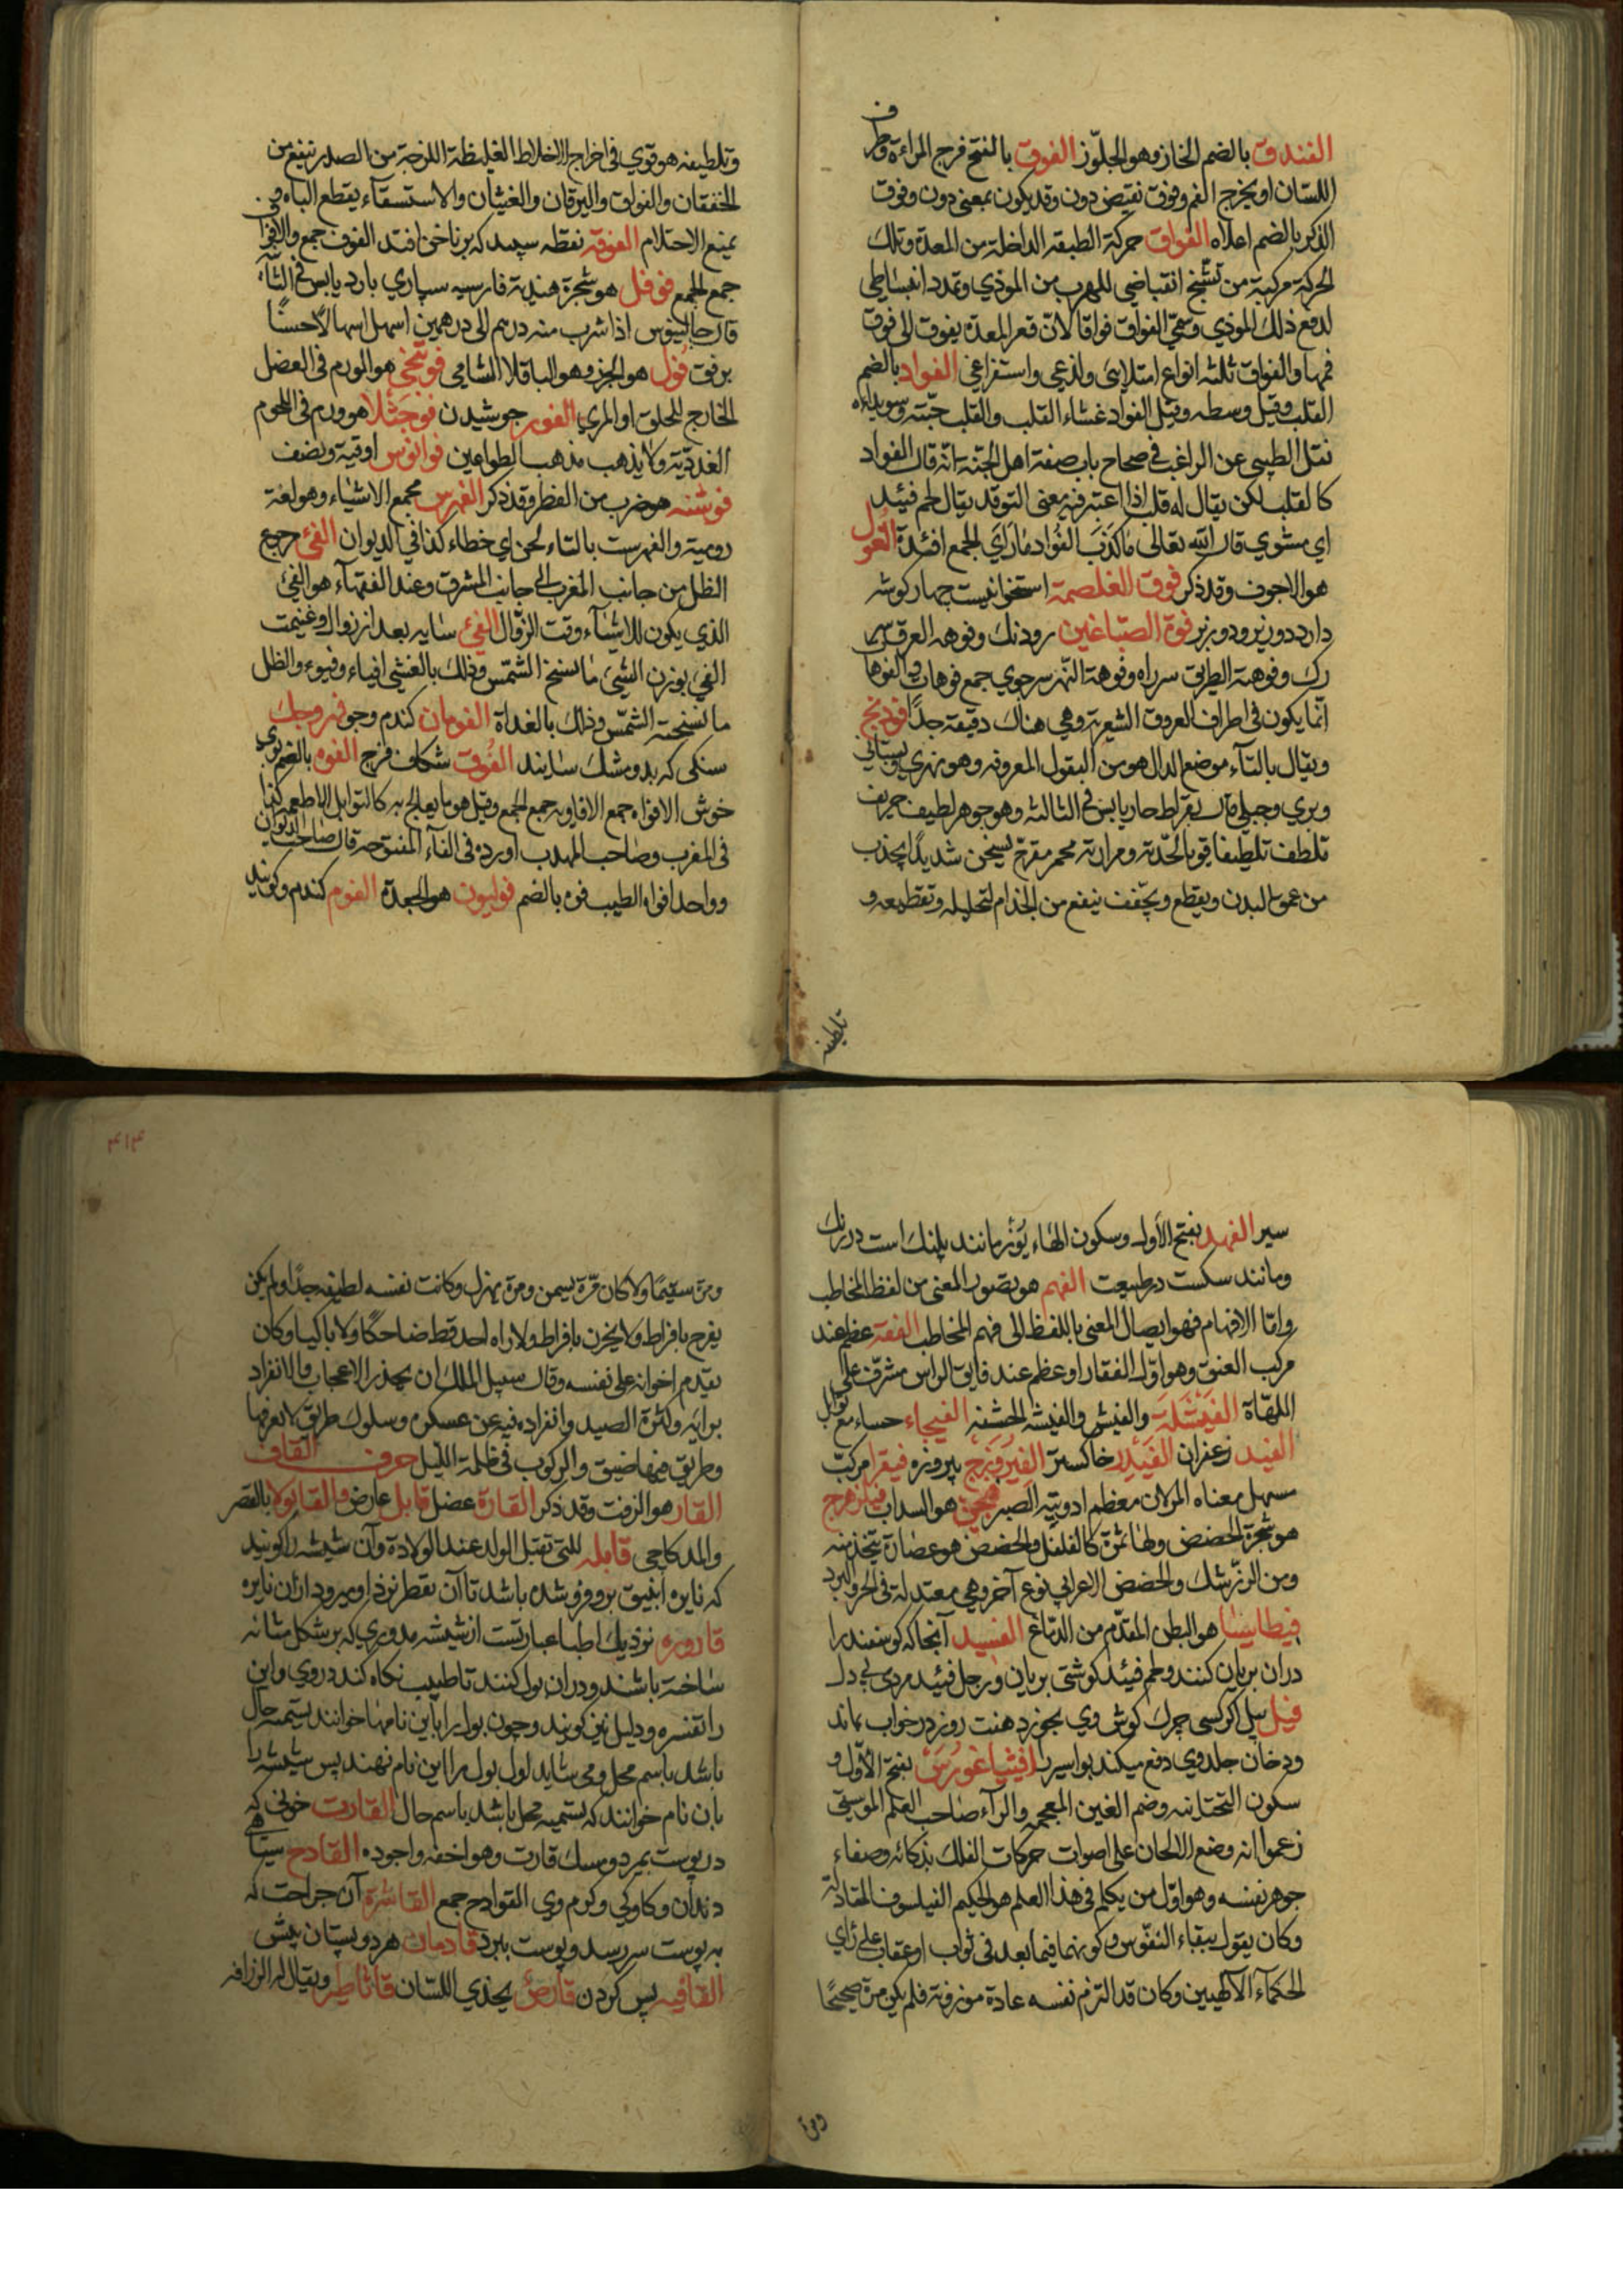 الفندق بالضم الخان وهو الجلوز الفوق بالفتح فرج المراءة وطرف
اللسان او مخرج الفم وفوق نقيض دون وقد يكون بمعنى دون وفوق
الذكر بالضم اعلاه الفواق حركة الطبقة الداخلة من المعدة وتلك
الحركة مركبة من تشنج انقباضي للهرب من الموذي وتمدد انبساطي
لدفع ذلك الموذي وسمي الفواق فواقا لان قعر المعدة يفوق الى فوق
فمها والفواق ثلثه انواع امتلائي ولذعي واستفراغي الفواد بالضم
القلب وقيل وسطه وقيل الفواد غشاء القلب والقلب حبته وسويداه
نقل الطيبي عن الراغب في صحاح باب صفة اهل الجنة انه قال الفواد
كالقلب لكن يقال له قلب اذا اعتبر فيه معنى التوقد يقال لحم فئيد
اي مشوي قال الله تعالى ما كذب الفواد ما راي الجمع افئدة
هو الاجوف وقد ذكر فوق الغلصمة استخوانيست چهار كوشه
دارد دو زبر ودو زير فوة الصباغين رودنك وفوهه العرق سر
رك وفوهة الطريق سر راه وفوهة النهر سر جوي جمع فوهات
انما يكون في اطراف العروق الشعرية وهي هناك دقيقة جدا فودنج
ويقال بالتاء موضع الدال هو من البقول المعروفة وهو نهري وبستاني
وبري وجبلي قال بقراط حار يابس في الثالثه وهو جوهر لطيف حريف
تلطف تلطيفا قويا لحدته ومرارته محمر مقرح يسخن شديدا يجذب
من عمق البدن ويقطع ويجفف ينفع من الجذام لتحليله وتقطيعه و
تلطيفه
وتلطيفه هو قوي في اخراج الاخلاط الغليظة اللزجة من الصدر تنفع من
الخفقان والفواق واليرقان والغثيان والاستسقاء يقطع الباه و
يمنع الاحتلام الفوفه نقطه سپيد كه بر ناخن افتد الفوف جمع
جمع الجمع فوفل هو شجرة هندية فارسيه سپاري بارد يابس في الثالثة
قال جالينوس اذا شرب منه درهم الى درهمين اسهل اسهالا حسنا
برفق فول هو الجرجر وهو الباقلا الشامي هو الورم في العضل
الخارج للحلق او المري الفور جوشيدن فوجثلا هو ورم في اللحوم
الغددية ولا يذهب مذهب الطواعين فوانوس اوقية ونصف
فوشنه هو ضرب من الفطر وقد ذكر الفهرس مجمع الاشياء وهو لغة
رومية والفهرست بالتاء لحن اي خطاء كذا في الديوان الفئ رجع
الظل من جانب المغرب الى جانب المشرق وعند الفقهاء هو الفئ
الذي يكون للاشياء وقت الزوال الفئ سايه بعد از زوال وغنيمت
الفئ بوزن الشئ ما نسخ الشمس وذلك بالعشي افياء وفيوء والظل
ما نسخته الشمس وذلك بالغداة الفومان كندم وجو
سنكى كه بدو مشك سايند الفوق شكاف فرج الفوه بالضم بوي
خوش الافواه جمع الافاويه جمع الجمع وقيل هو ما يعالج به كالتوابل للاطعمه كذا
في المغرب وصاحب المهذب اورده في الفاء المفتوحه قال صاحب الديوان
وواحد افواه الطيب فوه بالضم فوليون هو الجعدة الفوم كندم وكويند
سير الفهد بفتح الاول وسكون الهاء يوز مانند پلنك است در رنك
ومانند سكست در طبيعت الفهم هو تصور المعنى من لفظ المخاطب
واما الافهام فهو ايصال المعنى باللفظ الى فهم المخاطب الفقه عظم عند
مركب العنق وهو اول الفقار او عظم عند فايق الراس مشرف على
اللهاة الفيشلة والفيش والفيشه الحشفه الفيجاء حساء مع توابل
الفيد زعفران خاكستر الفيروزج پيروزه فيقرا مركب
مسهل معناه المر لان معظم ادويته الصبر فيجن هو السداب فيلزهرج
هو شجرة الحضض ولها ثمرة كالفلفل والحضض هو عصارة يتخذ منه
ومن الزرشك والحضض الاعرابي نوع آخر وهي معتدلة في الحر والبرد
فيطاسيا هو البطن المقدم من الدماغ آنجا كه كوسفند را
در ان بريان كنند ولحم فئيد كوشتى بريان ورجل فئيد مردى بي دل
فيل پيل اكر كسى چرك كوش وي بخورد هفت روز در خواب بماند
ودخان جلد وي دفع ميكند بواسير را فيثاغورس بفتح الاول و
سكون التحتانيه وضم الغين المعجمه والراء صاحب العلم الموسيقى
زعموا انه وضع الالحان على اصوات حركات الفلك بذكائه وصفاء
جوهر نفسه وهو اول من يكلم في هذا العلم هو الحكيم الفيلسوف
وكان يقول ببقاء النفوس وكونها فيما بعد في ثواب او عقاب على راي
الحكماء الالهيين وكان قد التزم نفسه عادة موزونة فلم يكن مرة صحيحا
ومرة
٤١٤
ومرة سقيما ولا كان مرة يسمن ومرة يهزل وكانت نفسه لطيفه جدا ولم يكن
يفرح بافراط ولا يحزن بافراط ولا راه احد قط ضاحكا ولا باكيا وكان
يقدم اخوانه على نفسه وقال سبيل الملك ان يحذر الاعجاب والانفراد
برايه وكثرة الصيد وانفراده فيه عن عسكره وسلوك طريق لا يعرفها
وطريق فيها ضيق والركوب في ظلمة الليل حرف القاف
القار هو الزفت وقد ذكر القارة عضل قابل عارض بالقصر
والمد كاجى قابله للتي تقبل الولد عند الولادة وآن شيشه را كويند
كه نايره انبيق برو فروشده باشد تا آن تقطر نزد او ميرود از ان نايره
قاروره نزديك اطبا عبارتست از شيشه مدوري كه بر شكل مثانه
ساخته باشند ودران بول كنند تا طبيب نكاه كند دروي واين
را تفسره ودليل نيز كويند وچون بول را باين نامها خوانند تسميه حال
باشد باسم محل ومى شايد اول بول را اين نام نهند پس شيشه را
بان نام خوانند كه تسميه محل باشد باسم حال القارت خونى كه
در پوست بميرد ومسك قارت وهو اخفه واجوده القادح سياهى
دندان وكاوكى وكرم وي القوادح جمع القاشرة آن جراحت كه
به پوست سر رسد وپوست ببرد قادمان هر دو پستان پيش
القافيه پس كردن قارص يحذي اللسان قاثاطير ويقال له الزراقه